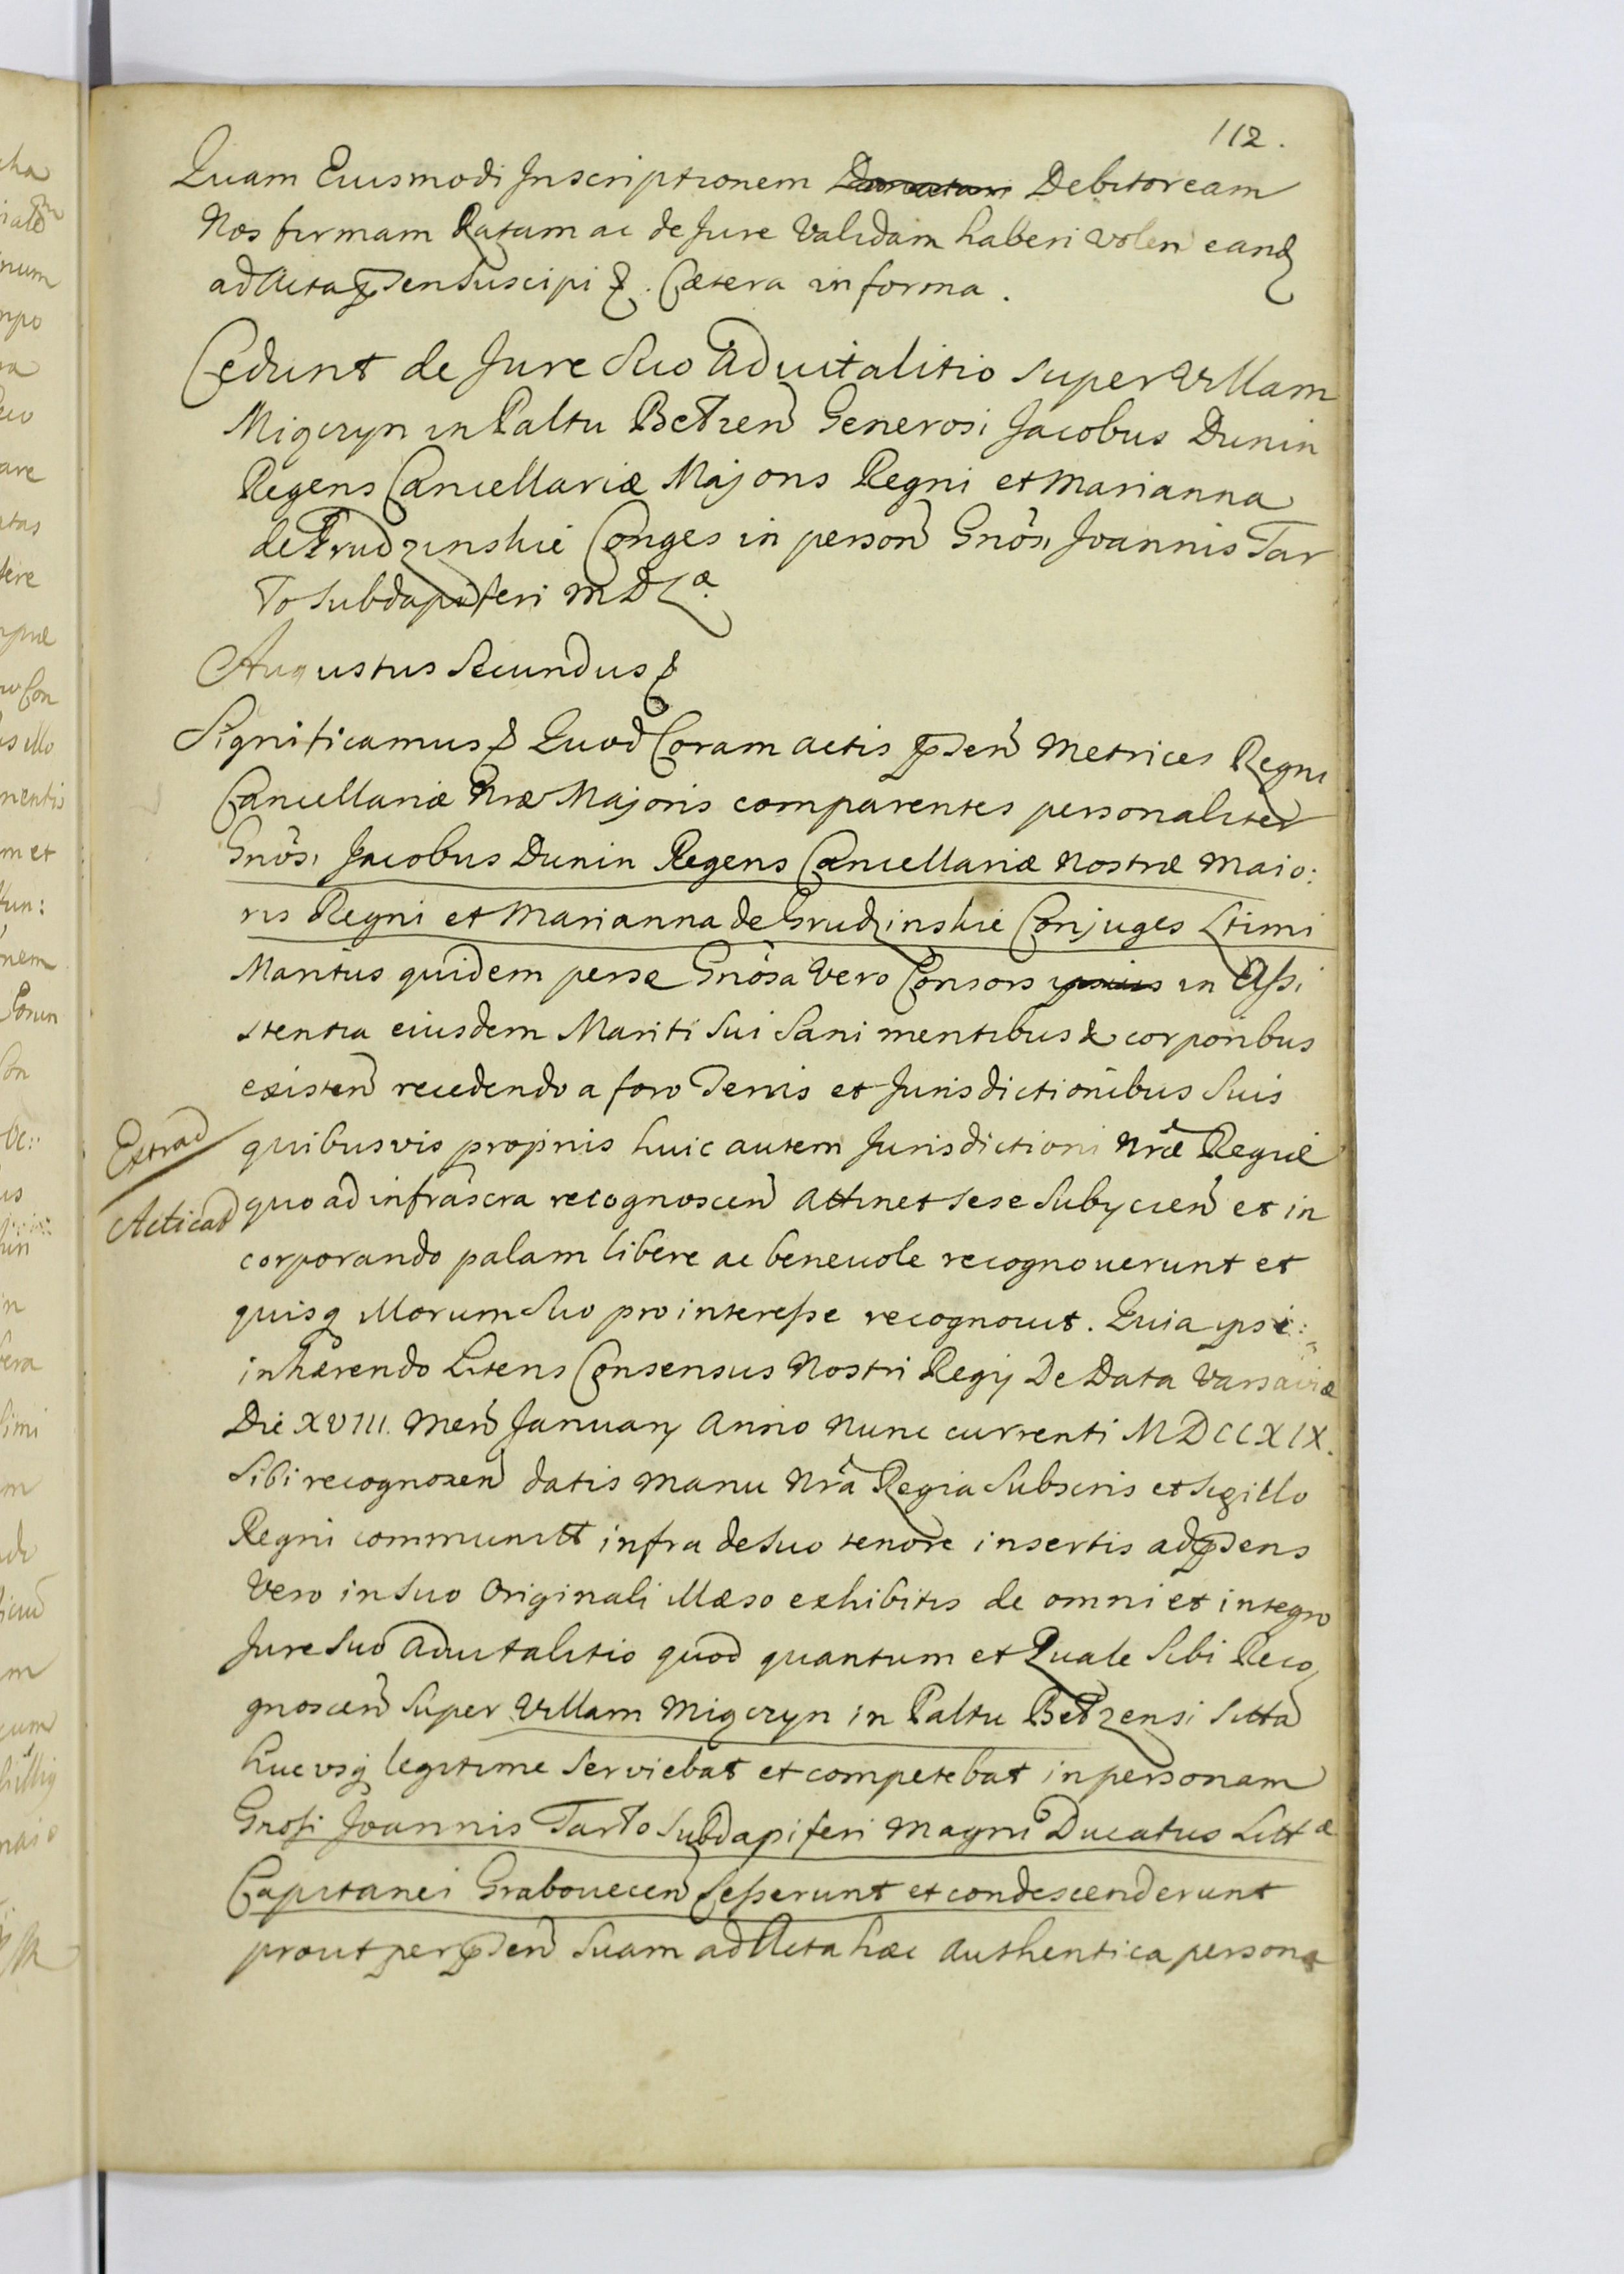 112.
Quam Eiusmodi Inscriptionem Donatam Debitoream
Nos firmam Ratam ac de Jure Validam haberi volen eand
ad Acta pñsen Suscipi &. Cætera in forma.
Cedunt de Jure Suo Aduitalitio super Villam
Migczyn in Palttu Bełzeñ Generosi Jacobus Dunin
Regens Cancellariæ Majoris Regni et Marianna
de Grudzinskie Conges in persoñ Gnôsi Joannis Tar
ło Subdapiferi M D L æ.
Augustus Secundus &
Significamus & Quod Coram actis pñseñ Metrices Regni
Cancellariæ Nræ Majoris comparentes personaliter
Gnôsi Jacobus Dunin Regens Cancellariæ Nostræ Maio:
ris Regni et Marianna de Grudzinskie Conjuges Ltimi
Maritus quidem per se Gnôsa Vero Consors ipsius in Assi
stentia eiusdem Mariti Sui Sani mentibus & corporibus
existeñ recedendo a foro Terris et Jurisdictionibus Suis
quibusvis proprijs huic autem Jurisdictioni Nræ Regiæ
quo ad infrascra recognosceñ attinet sese Subijcieñ et in
corporando palam libere ac beneuole recognouerunt et
quisq illorum Suo pro interesse recognouit. Quia ipsi:
inhærendo Literis Consensus Nostri Regij De Data Varsaviæ
Die XVIII. Meñ Januarij Anno Nunc currenti MDCCXIX.
Sibi recognosceñ datis manu Nrâ Regia Subscris et Sigillo
Regni communitt infra de Suo tenore insertis ad pñsens
Vero in Suo Originali illæso exhibitis de omni et integro
Jure Suo Aduitalitio quod quantum et Quale Sibi Reco
gnosceñ Super Villam Migczyn in Palttu Bełzensi Sitta
huc vsq legitime Serviebat et competebat in personam
Gnosi Joannis Tarło Subdapiferi Magni Ducatus Litt æ
Capitanei Graboueceñ Cesserunt et condescenderunt
prout per pñseñ Suam ad Acta hæc Authentica persona
Extrad
Acticat